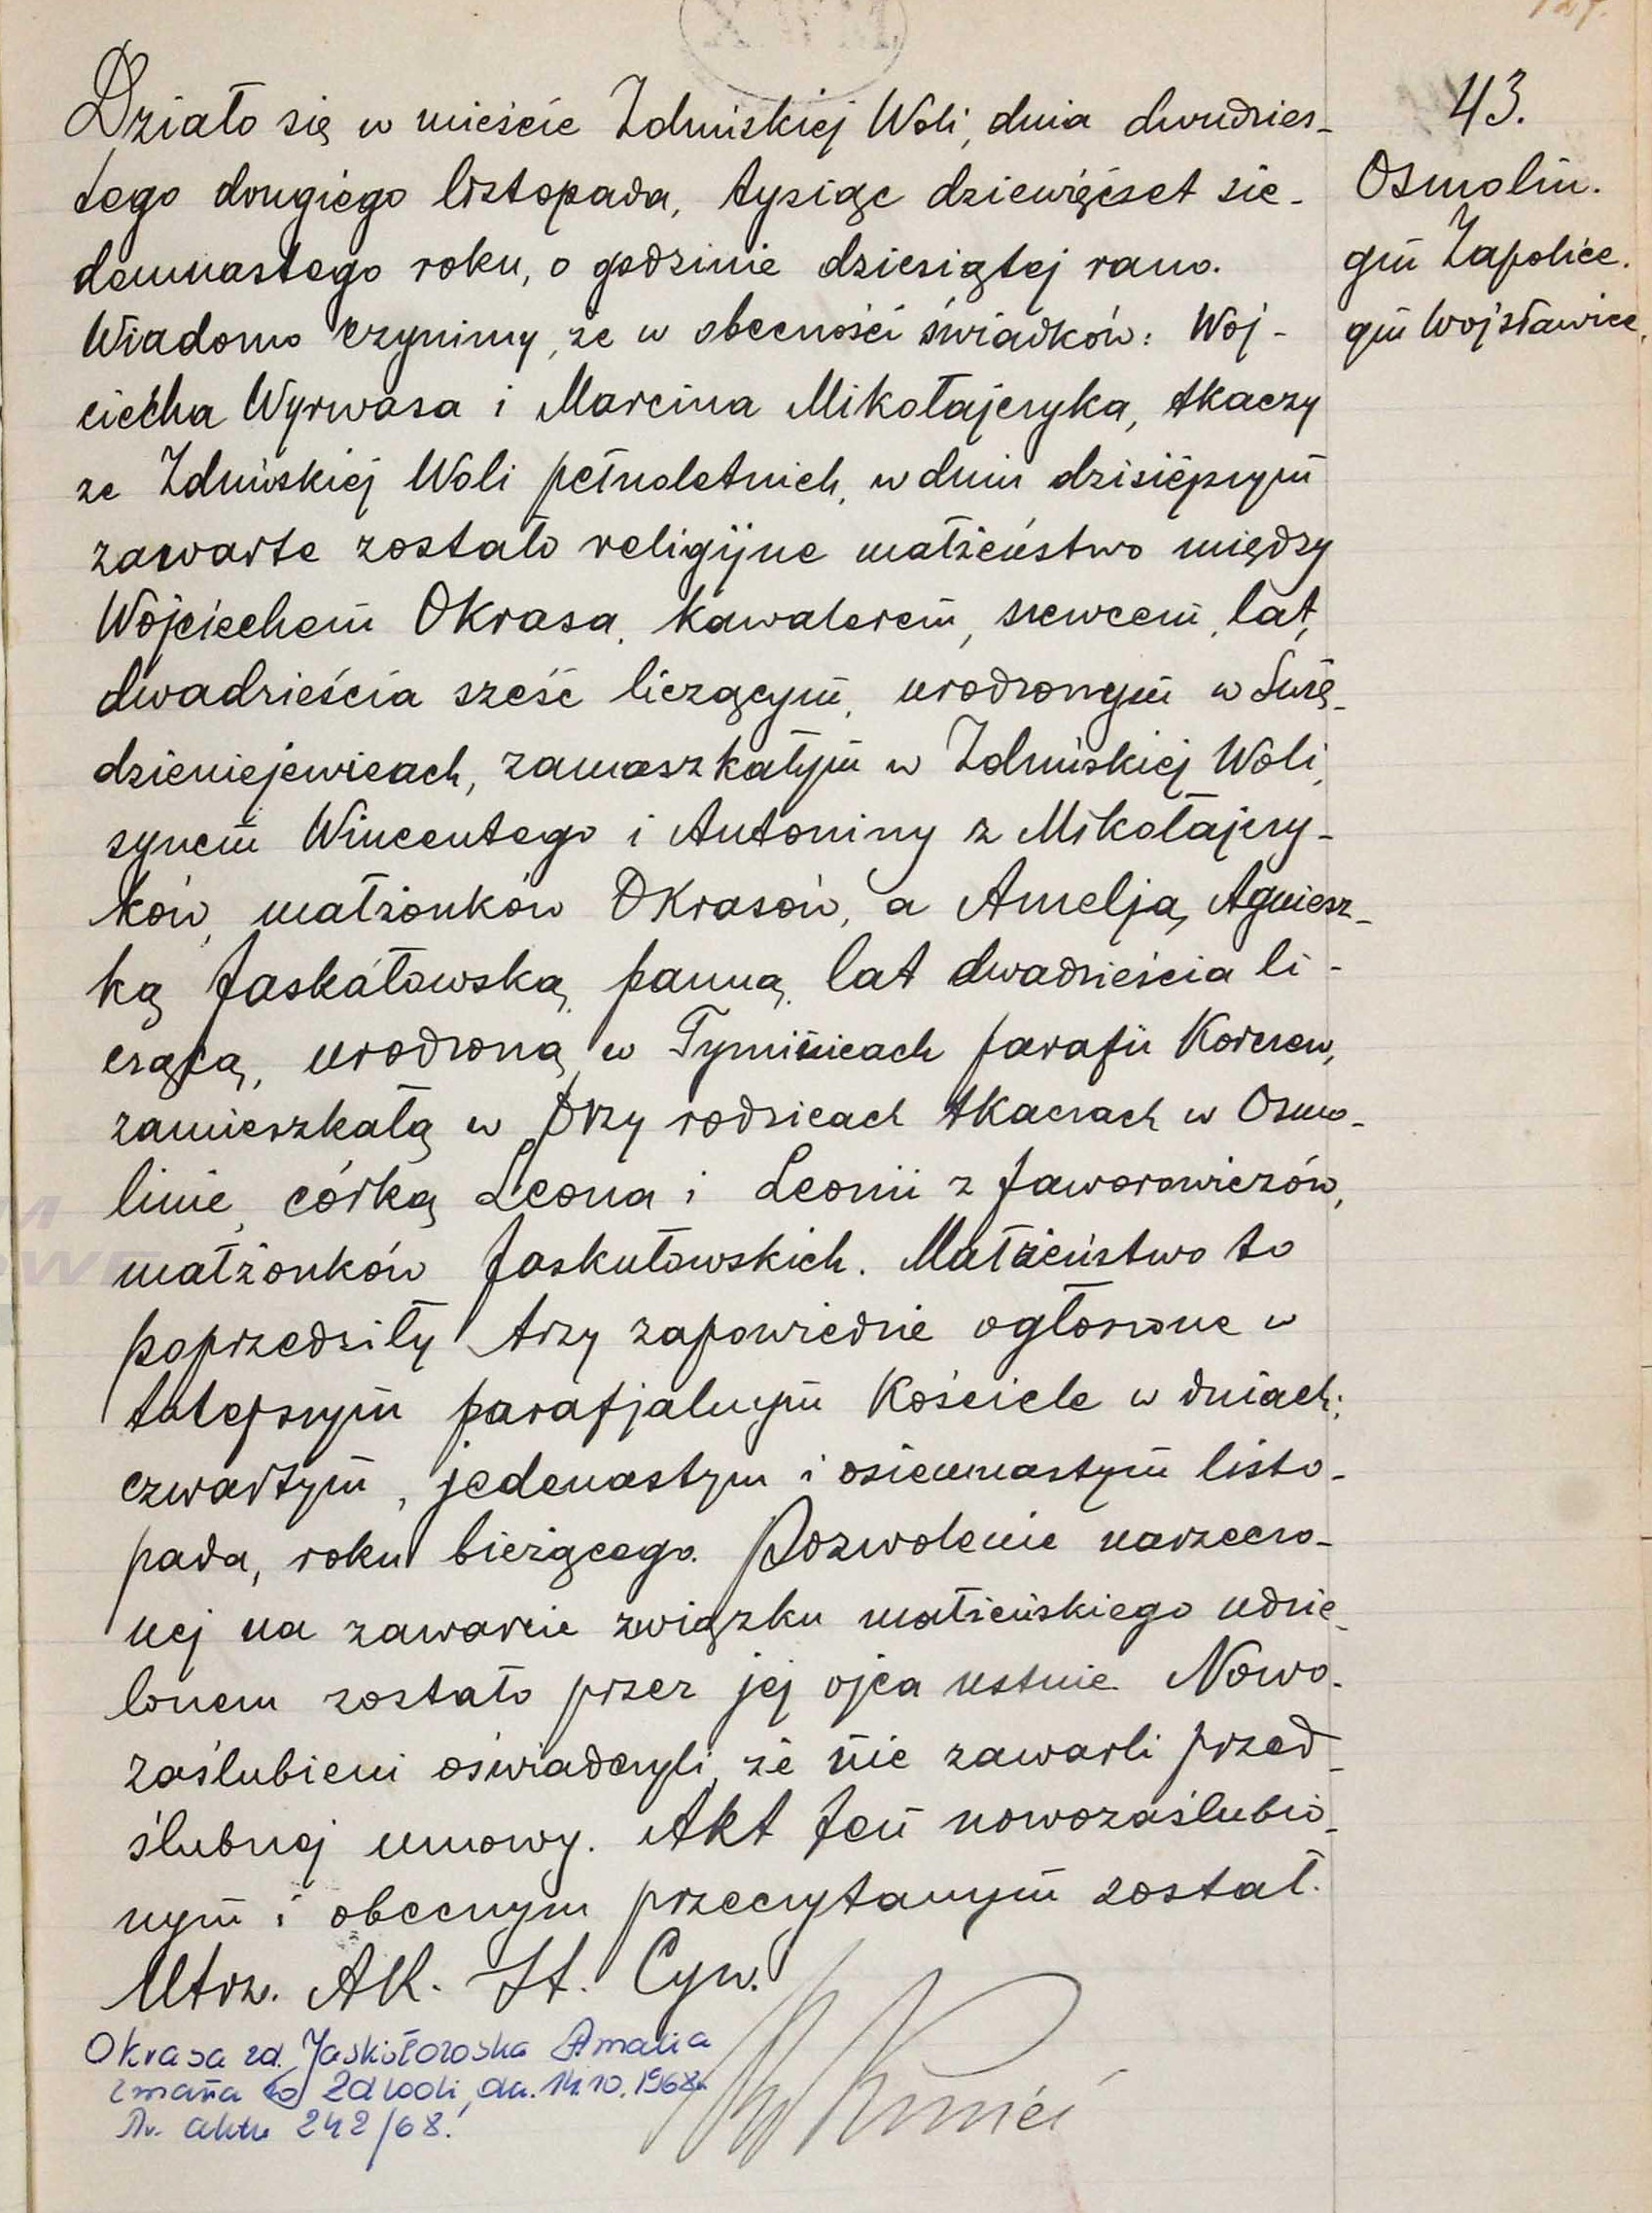 Działo się w mieście Zduńskiej Woli, dnia dwudzies-
tego drugiego listopada, tysiąc dziewięćset sie-
demnastego roku, o godzinie dziesiątej rano.
Wiadomo czynimy, że w obecności świadków: Woj-
ciecha Wyrwasa i Marcina Mikołajczyka, tkaczy
ze Zduńskiej Woli pełnoletnich, w dniu dzisiejszym
zawarte zostało religijne małżeństwo między
Wojciechem Okrasa, kawalerem, szewcem, lat,
dwadzieścia sześć liczącym, urodzonym w Suchę-
dzieniejewicach, zamaszkałym w Zduńskiej Woli,
synem Wincentego i Antoniny z Mikołajczy-
ków, małżonków Okrasów, a Amelją Agniesz-
ką Jaskátowską, panną, lat dwadzieścia li-
czącą, urodzoną w Tymienicach parafii Korczew,
zamieszkałą w przy rodzicach tkaczach w Osmo-
linie, córką Leona i Leonii z Jaworowiczów,
małżonków Jaskułowskich. Małżeństwo to
poprzedziły trzy zapowiedzie ogłoszone w
tutejszym parafjalnym Kościele w dniach:
czwartym, jedenastym i osiemnastym listo-
pada, roku bieżącego. Pozwolenie narzeczo-
nej na zawarcie związku małżeńskiego udzie-
lonem zostało przez jej ojca ustnie. Nowo-
zaślubieni oświadczyli, że nie zawarli przed-
ślubnej umowy. Akt ten nowozaślubio-
nym i obecnym przeczytanym został.
Utrz. Ak. St. Cyw.
Okrasa zd. Jaskółowska Amalia
zmarła w Zd Woli, dn. 14.10.1968r
Nr. aktu 242/68.
43.
Osmolin.
gm Zapolice.
gm Wojsławice.